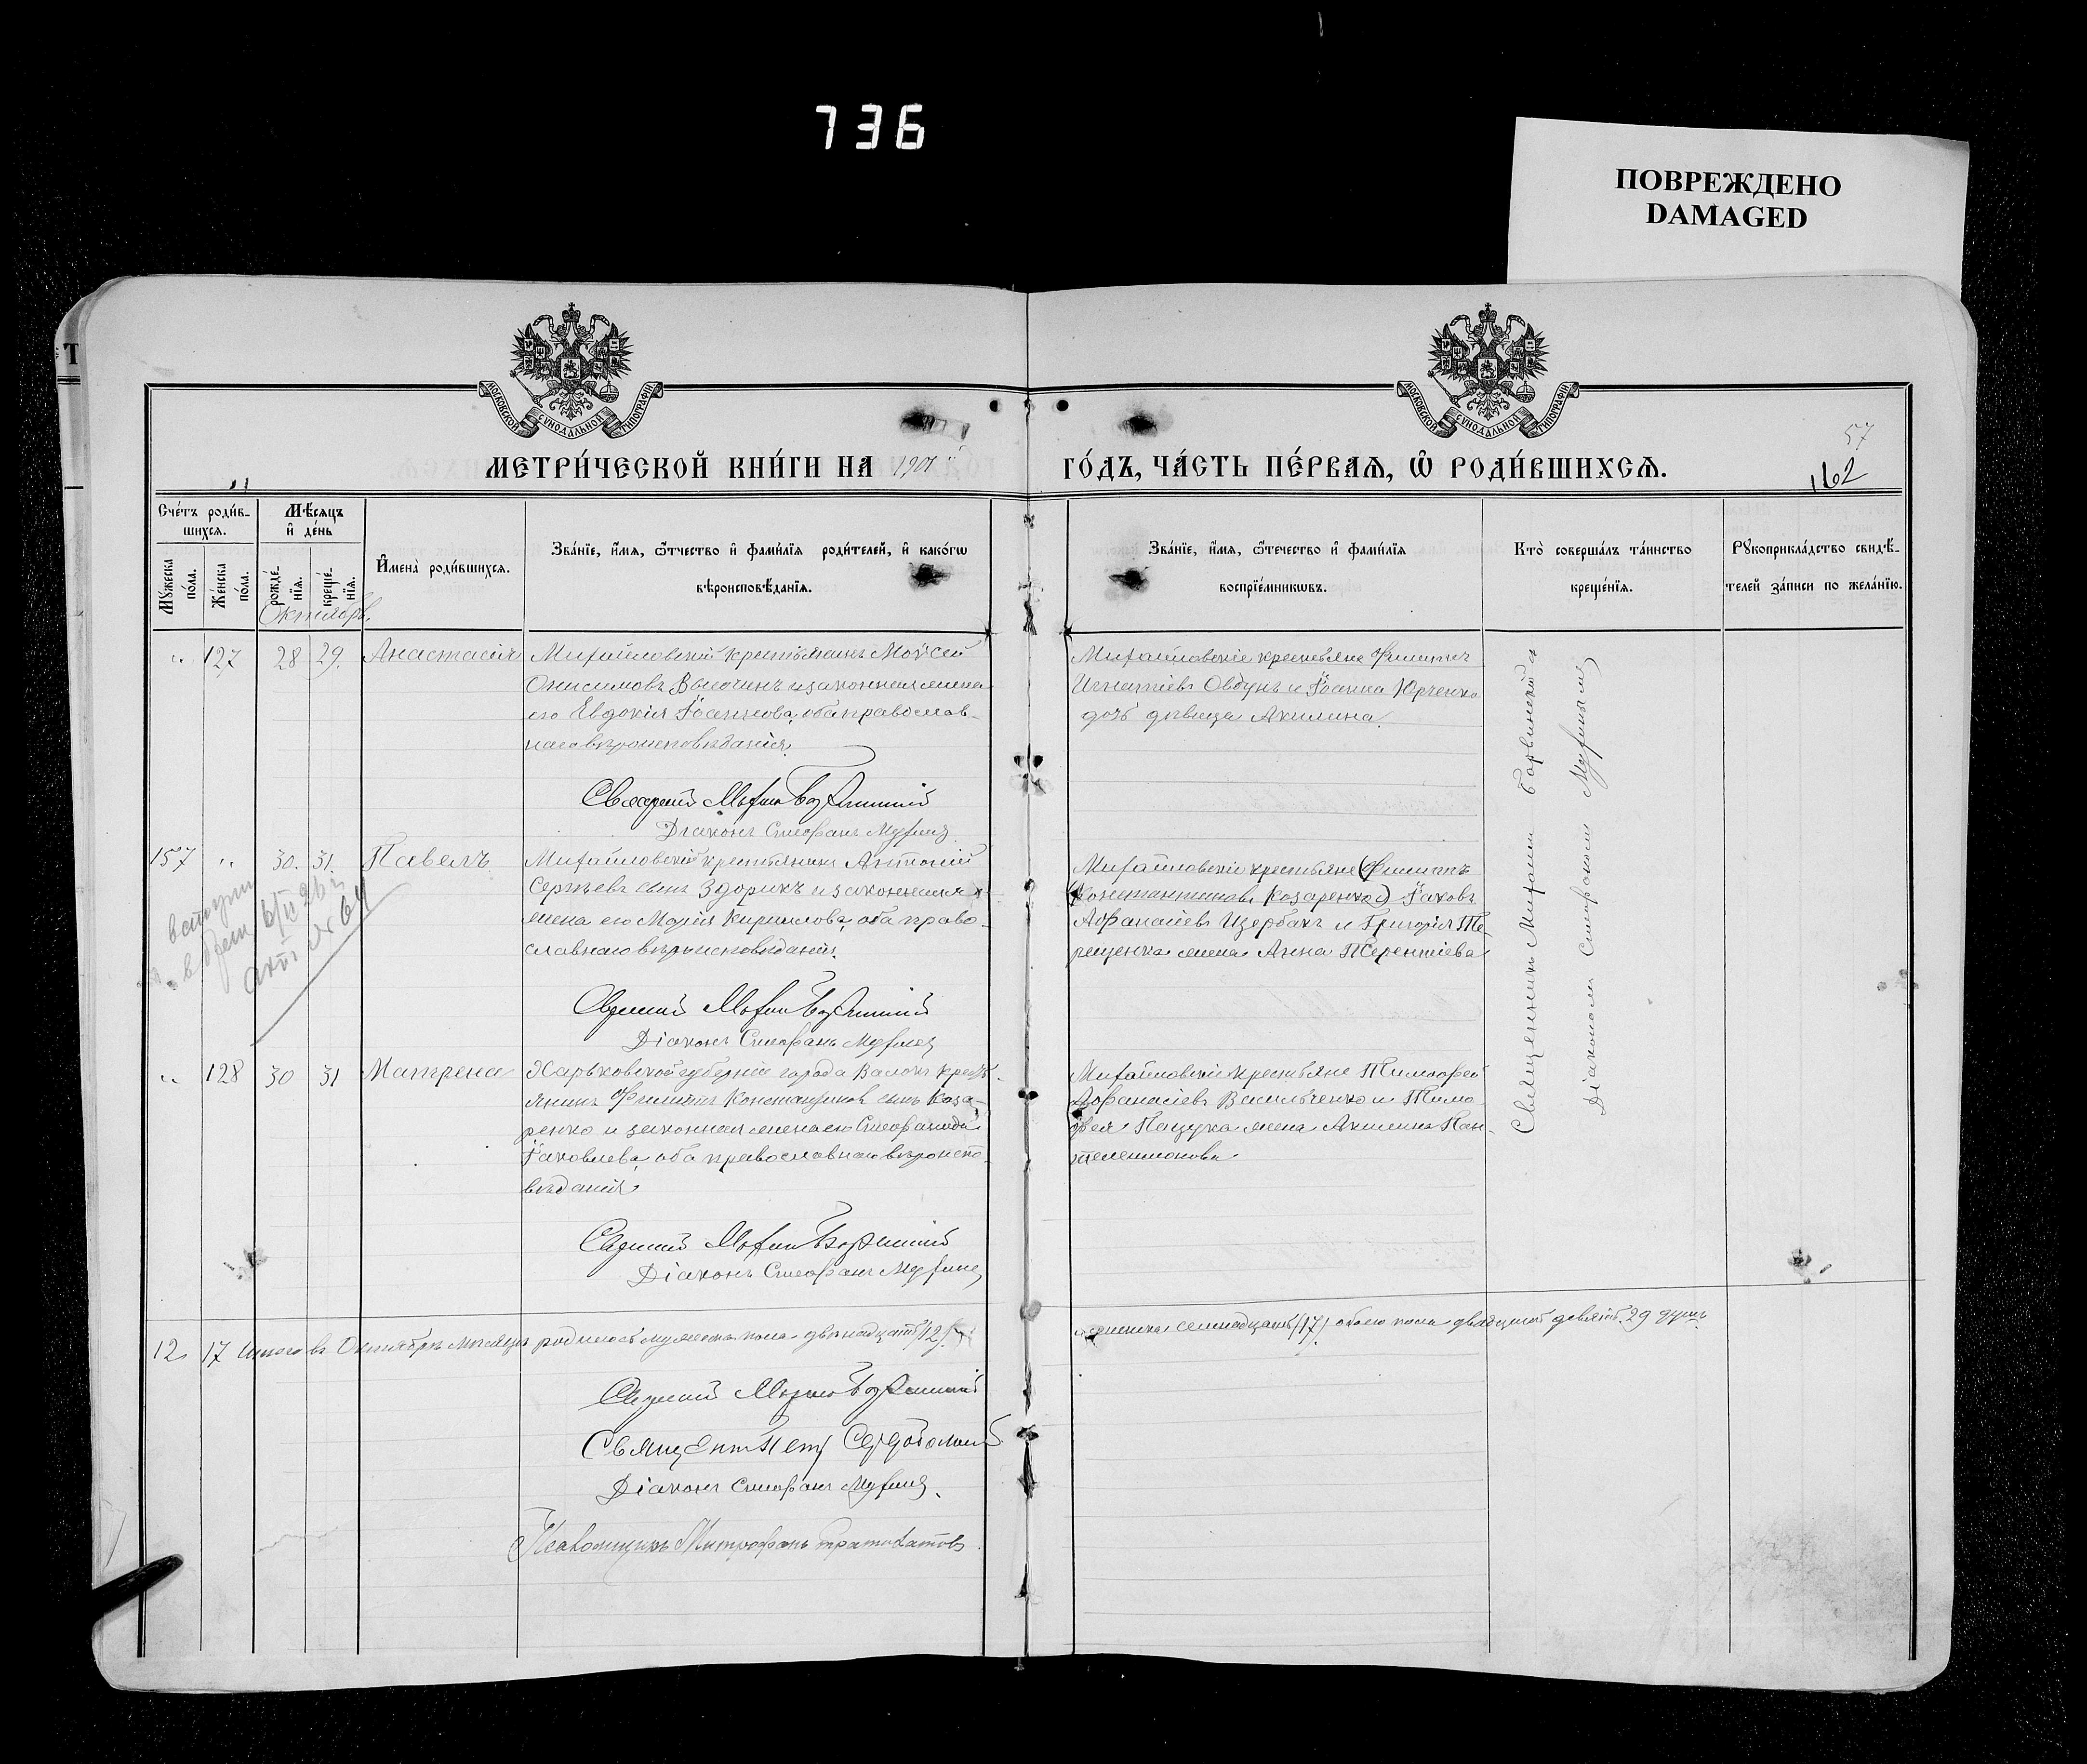 736
ПОВРЕЖДЕНО
DAMAGED
МОСКОВСКОЙ СѴНОДАЛЬНОЙ ТИПОГРАФІИ
МОСКОВСКОЙ СѴНОДАЛЬНОЙ ТИПОГРАФІИ
57
162
МЕТРИ́ЧЕСКОЙ КНИ́ГИ НА 1901й
ГО́ДЪ, ЧА́СТЬ ПЕ́РВАѦ, Ѡ҆ РОДИ́ВШИХСѦ.
Сче́тъ роди́в-
шихсѧ.
Мѣ́сѧцъ
и҆ де́нь
Мꙋ́жеска
по́ла.
Же́нска
по́ла.
рожде́-
нїѧ.
креще́-
нїѧ.
И҆мена̀ роди́вшихсѧ.
Зва́нїе, и҆́мѧ, ѻ҆́тчество и҆ фами́лїѧ роди́телей, и҆ како́гѡ
вѣроисповѣ́данїѧ.
Зва́нїе, и҆́мѧ, ѻ҆те́чество и҆ фами́лїѧ
воспрїе́мникѡвъ.
Кто̀ соверша́лъ та́инство
креще́нїѧ.
Рꙋкоприкла́дство свидѣ́-
телей за́писи по жела́нїю.
Октябрь.
" 127 28 29. Анастасія
Михайловскій крестьянинъ Моѵсей
Онисимовъ Высочинъ и законная жена
его Евдокія Іоаннова, оба православ-
наго вѣроисповѣданія.
Діаконъ Стефанъ
Михайловскіе крестьяне Филиппъ
Игнатіевъ Овдунъ и Іоанна Юрченко
дочь дѣвица Акилина.
157 " 30. 31. Павелъ
Михайловскій крестьянинъ Антоній
Сергѣевъ сынъ Здорикъ и законная
жена его Марія Кириллова, оба право-
славнаго вѣроисповѣданія.
Діаконъ Стефанъ
Михайловскіе крестьяне (Филиппъ
Константиновъ Козаренко) Іаковъ
Аѳанасіевъ Щербакъ и Григорія Те-
рещенка жена Анна Терентіева
вступил
в брак 6/II 26 г.
акт № 64
" 128 30 31 Матрена
Харьковской губерніи города Валокъ кресть-
янинъ Филиппъ Константиновъ сынъ Коза-
ренко и законная жена его Стефанида
Іаковлева, оба православнаго вѣроиспо-
вѣданія
Діаконъ Стефанъ
Михайловскіе крестьяне Тимоѳей
Аѳанасіевъ Васильченко и Тимо-
ѳея Пацука жена Акилина Пан-
телеимонова.
Священникъ Михаилъ
Діакономъ Стефаномъ
12. 17 Итого въ Октябрѣ мѣсяцѣ родилось мужеска пола двѣнадцать (12)
и женска семнадцать (17) обоего пола двадцать девять. 29 душъ.
Священникъ Петръ
Діаконъ Стефанъ
Псаломщикъ Митрофанъ